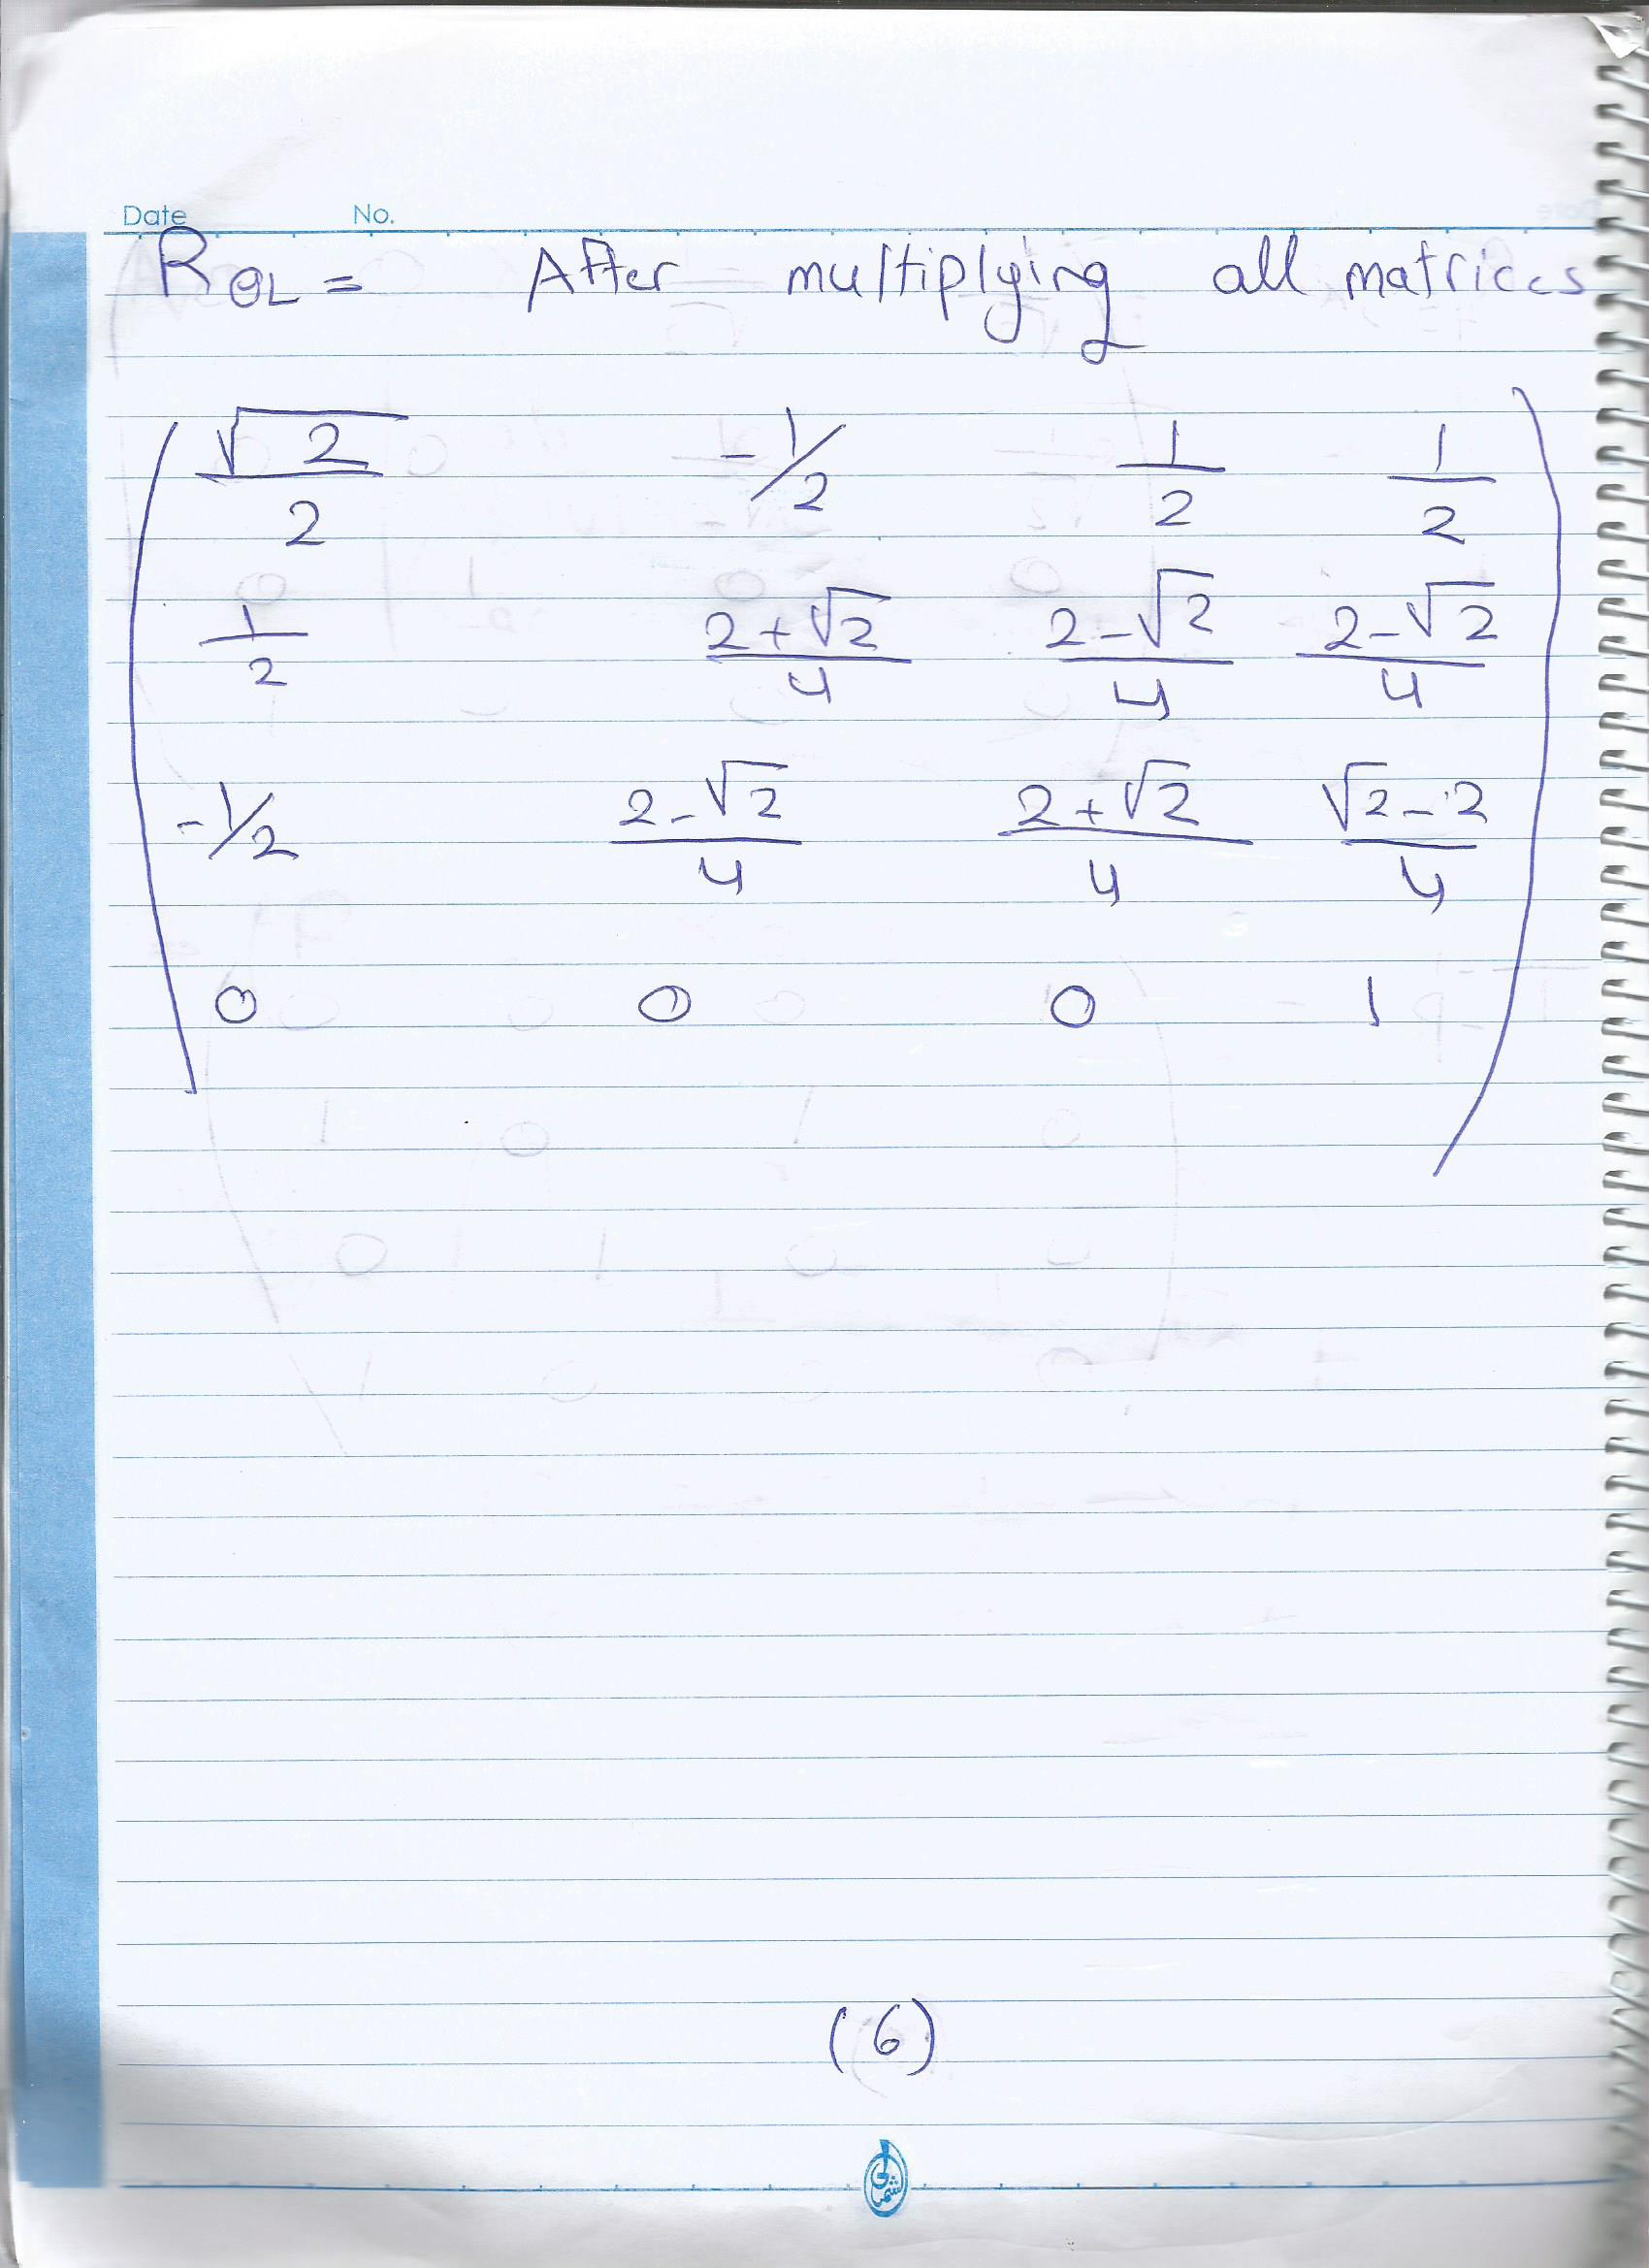 Date No.
RθL = After multiplying all matrices
√2/2 -1/2 1/2 1/2
1/2 2+√2/4 2-√2/4 2-√2/4
-1/2 2-√2/4 2+√2/4 √2-2/4
0 0 0 1
(6)